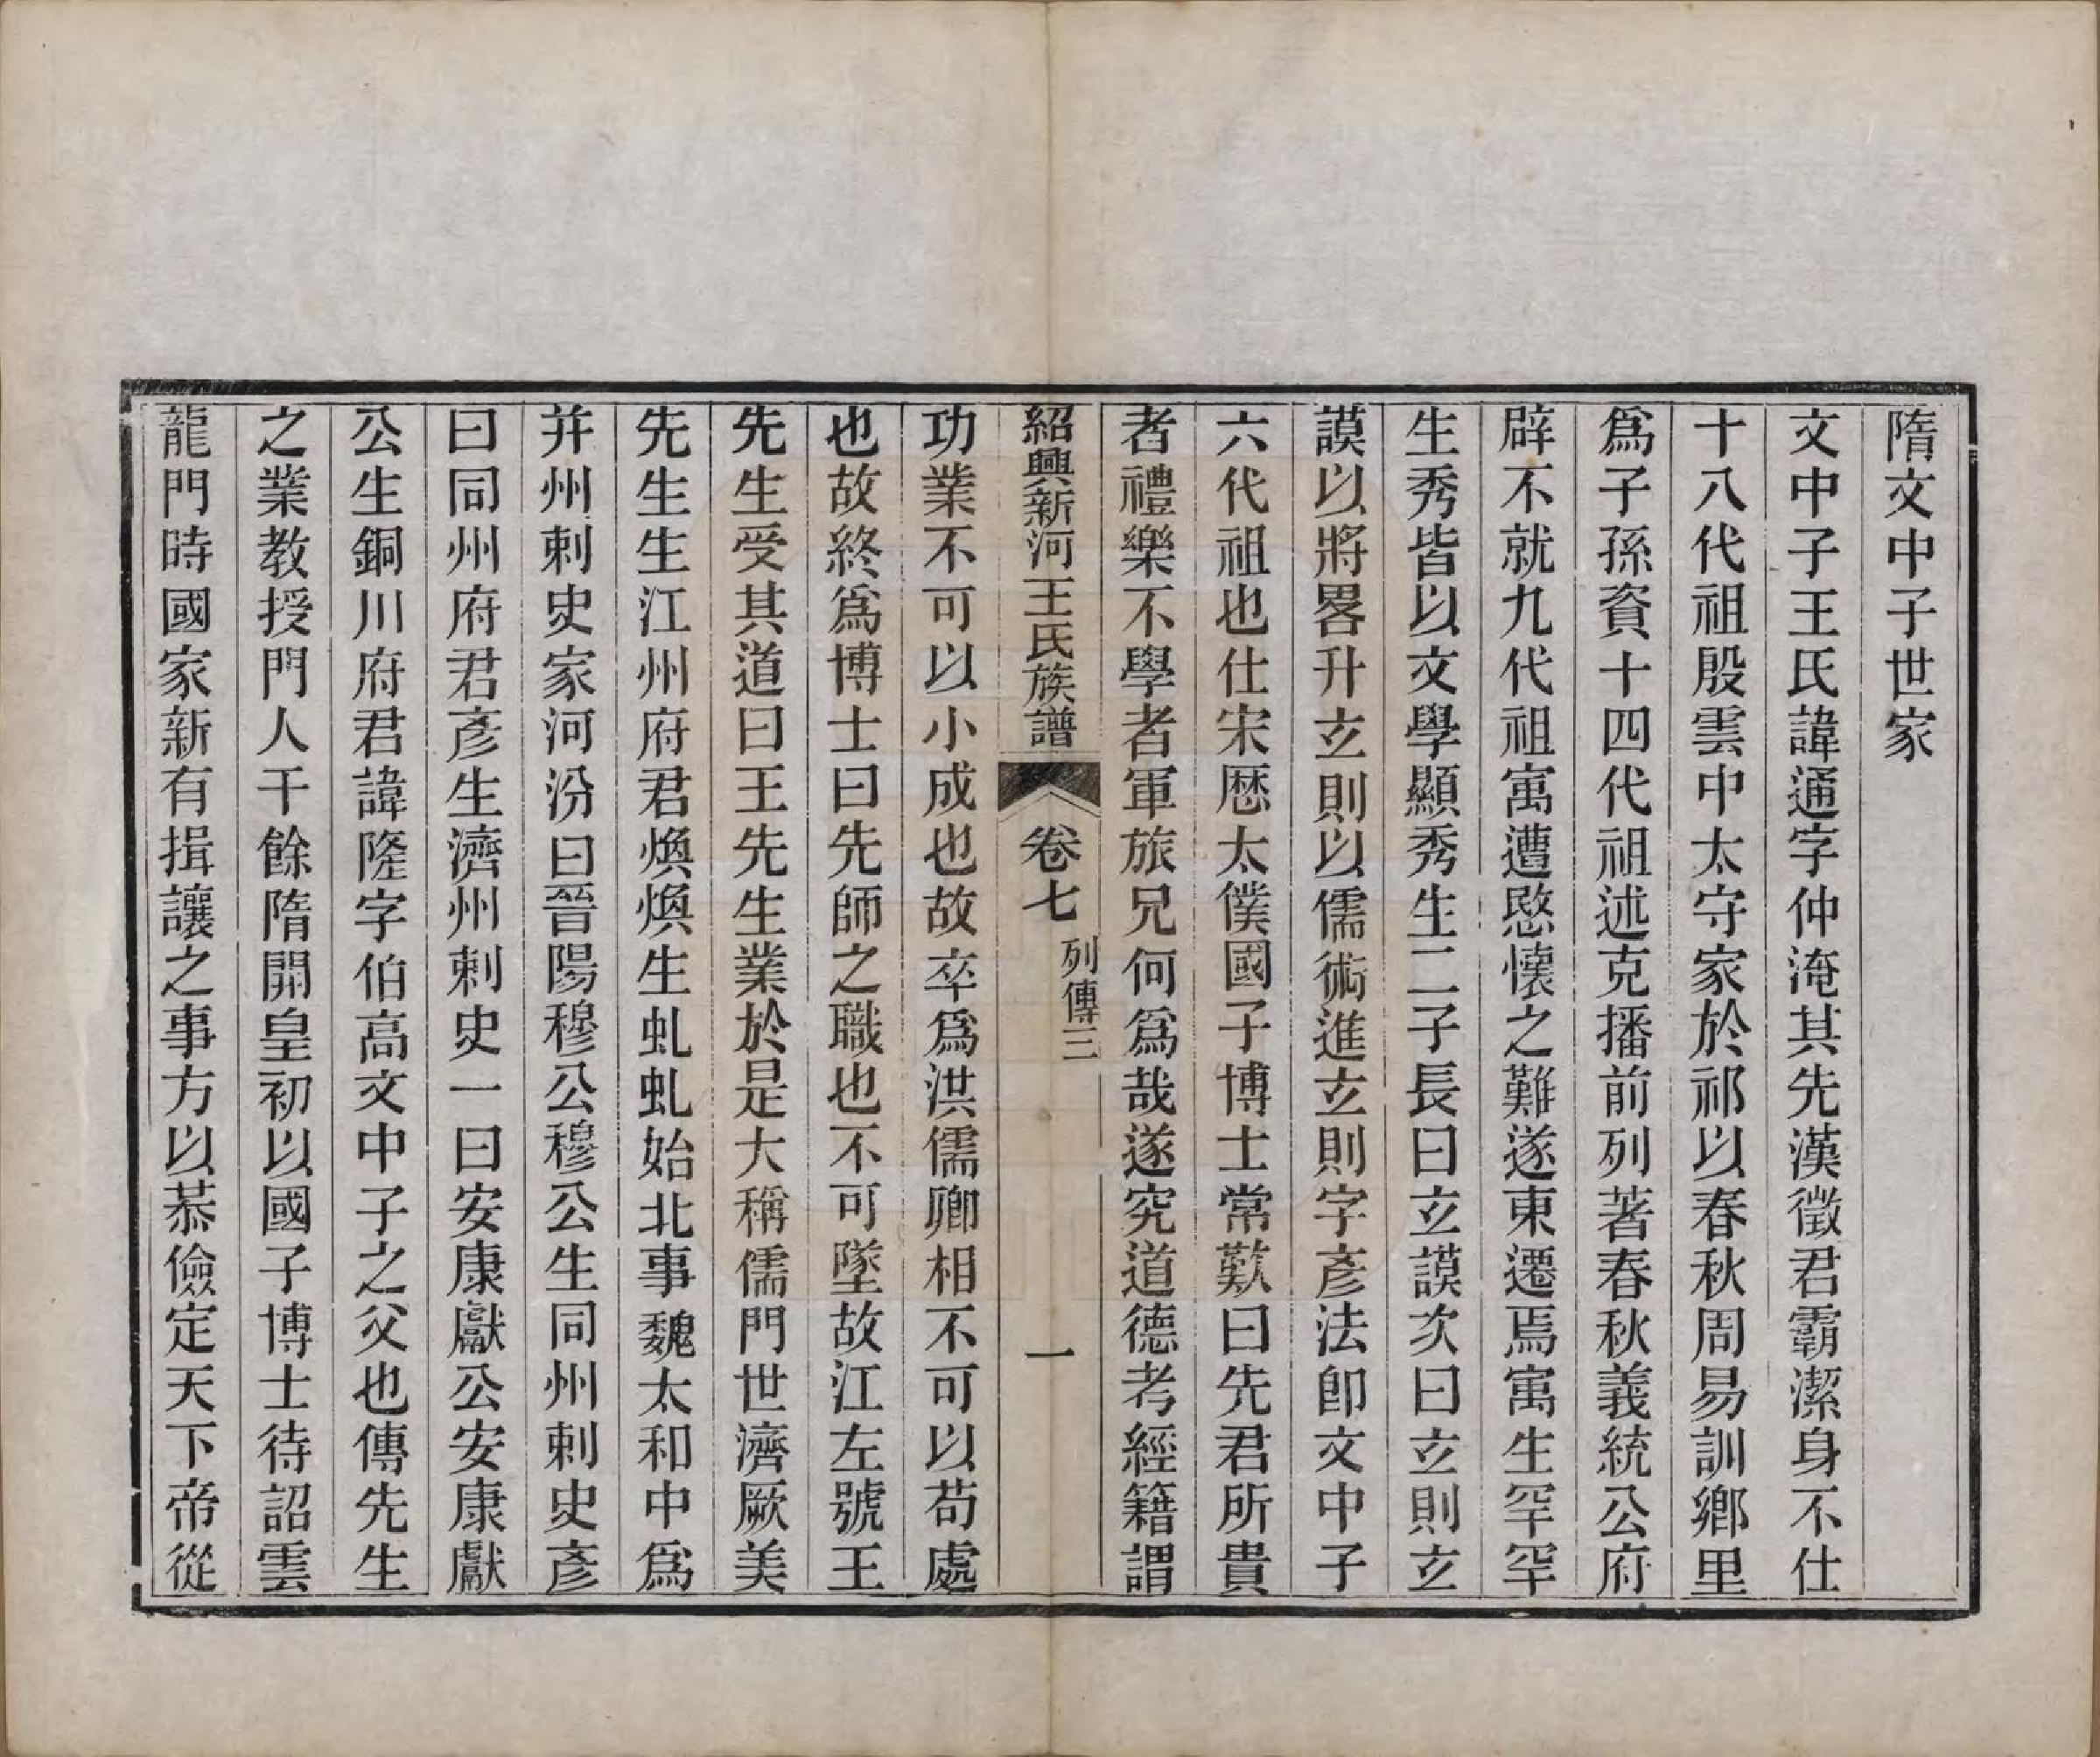 隋文中子世家
文中子王氏諱通字仲淹其先漢徵君霸潔身不仕
十八代祖殷雲中太守家於祁以春秋周易訓鄉里
爲子孫資十四代祖述克播前列著春秋義統公府
辟不就九代祖寓遭愍懷之難遂東遷焉寓生罕罕
生秀皆以文學顯秀生二子長曰玄謨次曰玄則玄
謨以將畧升玄則以儒術進玄則字彥法卽文中子
六代祖也仕宋厯太僕國子博士常歎曰先君所貴
者禮樂不學者軍旅兄何爲哉遂究道德考經籍謂
紹興新河王氏族譜 卷七 列傳三 一
功業不可以小成也故卒爲洪儒卿相不可以苟處
也故終爲博士曰先師之職也不可墜故江左號王
先生受其道曰王先生業於是大稱儒門世濟厥美
先生生江州府君煥煥生虬虬始北事魏太和中爲
并州刺史家河汾曰晉陽穆公穆公生同州刺史彥
曰同州府君彥生濟州刺史一曰安康獻公安康獻
公生銅川府君諱隆字伯高文中子之父也傳先生
之業教授門人千餘隋開皇初以國子博士待詔雲
龍門時國家新有揖讓之事方以恭儉定天下帝從